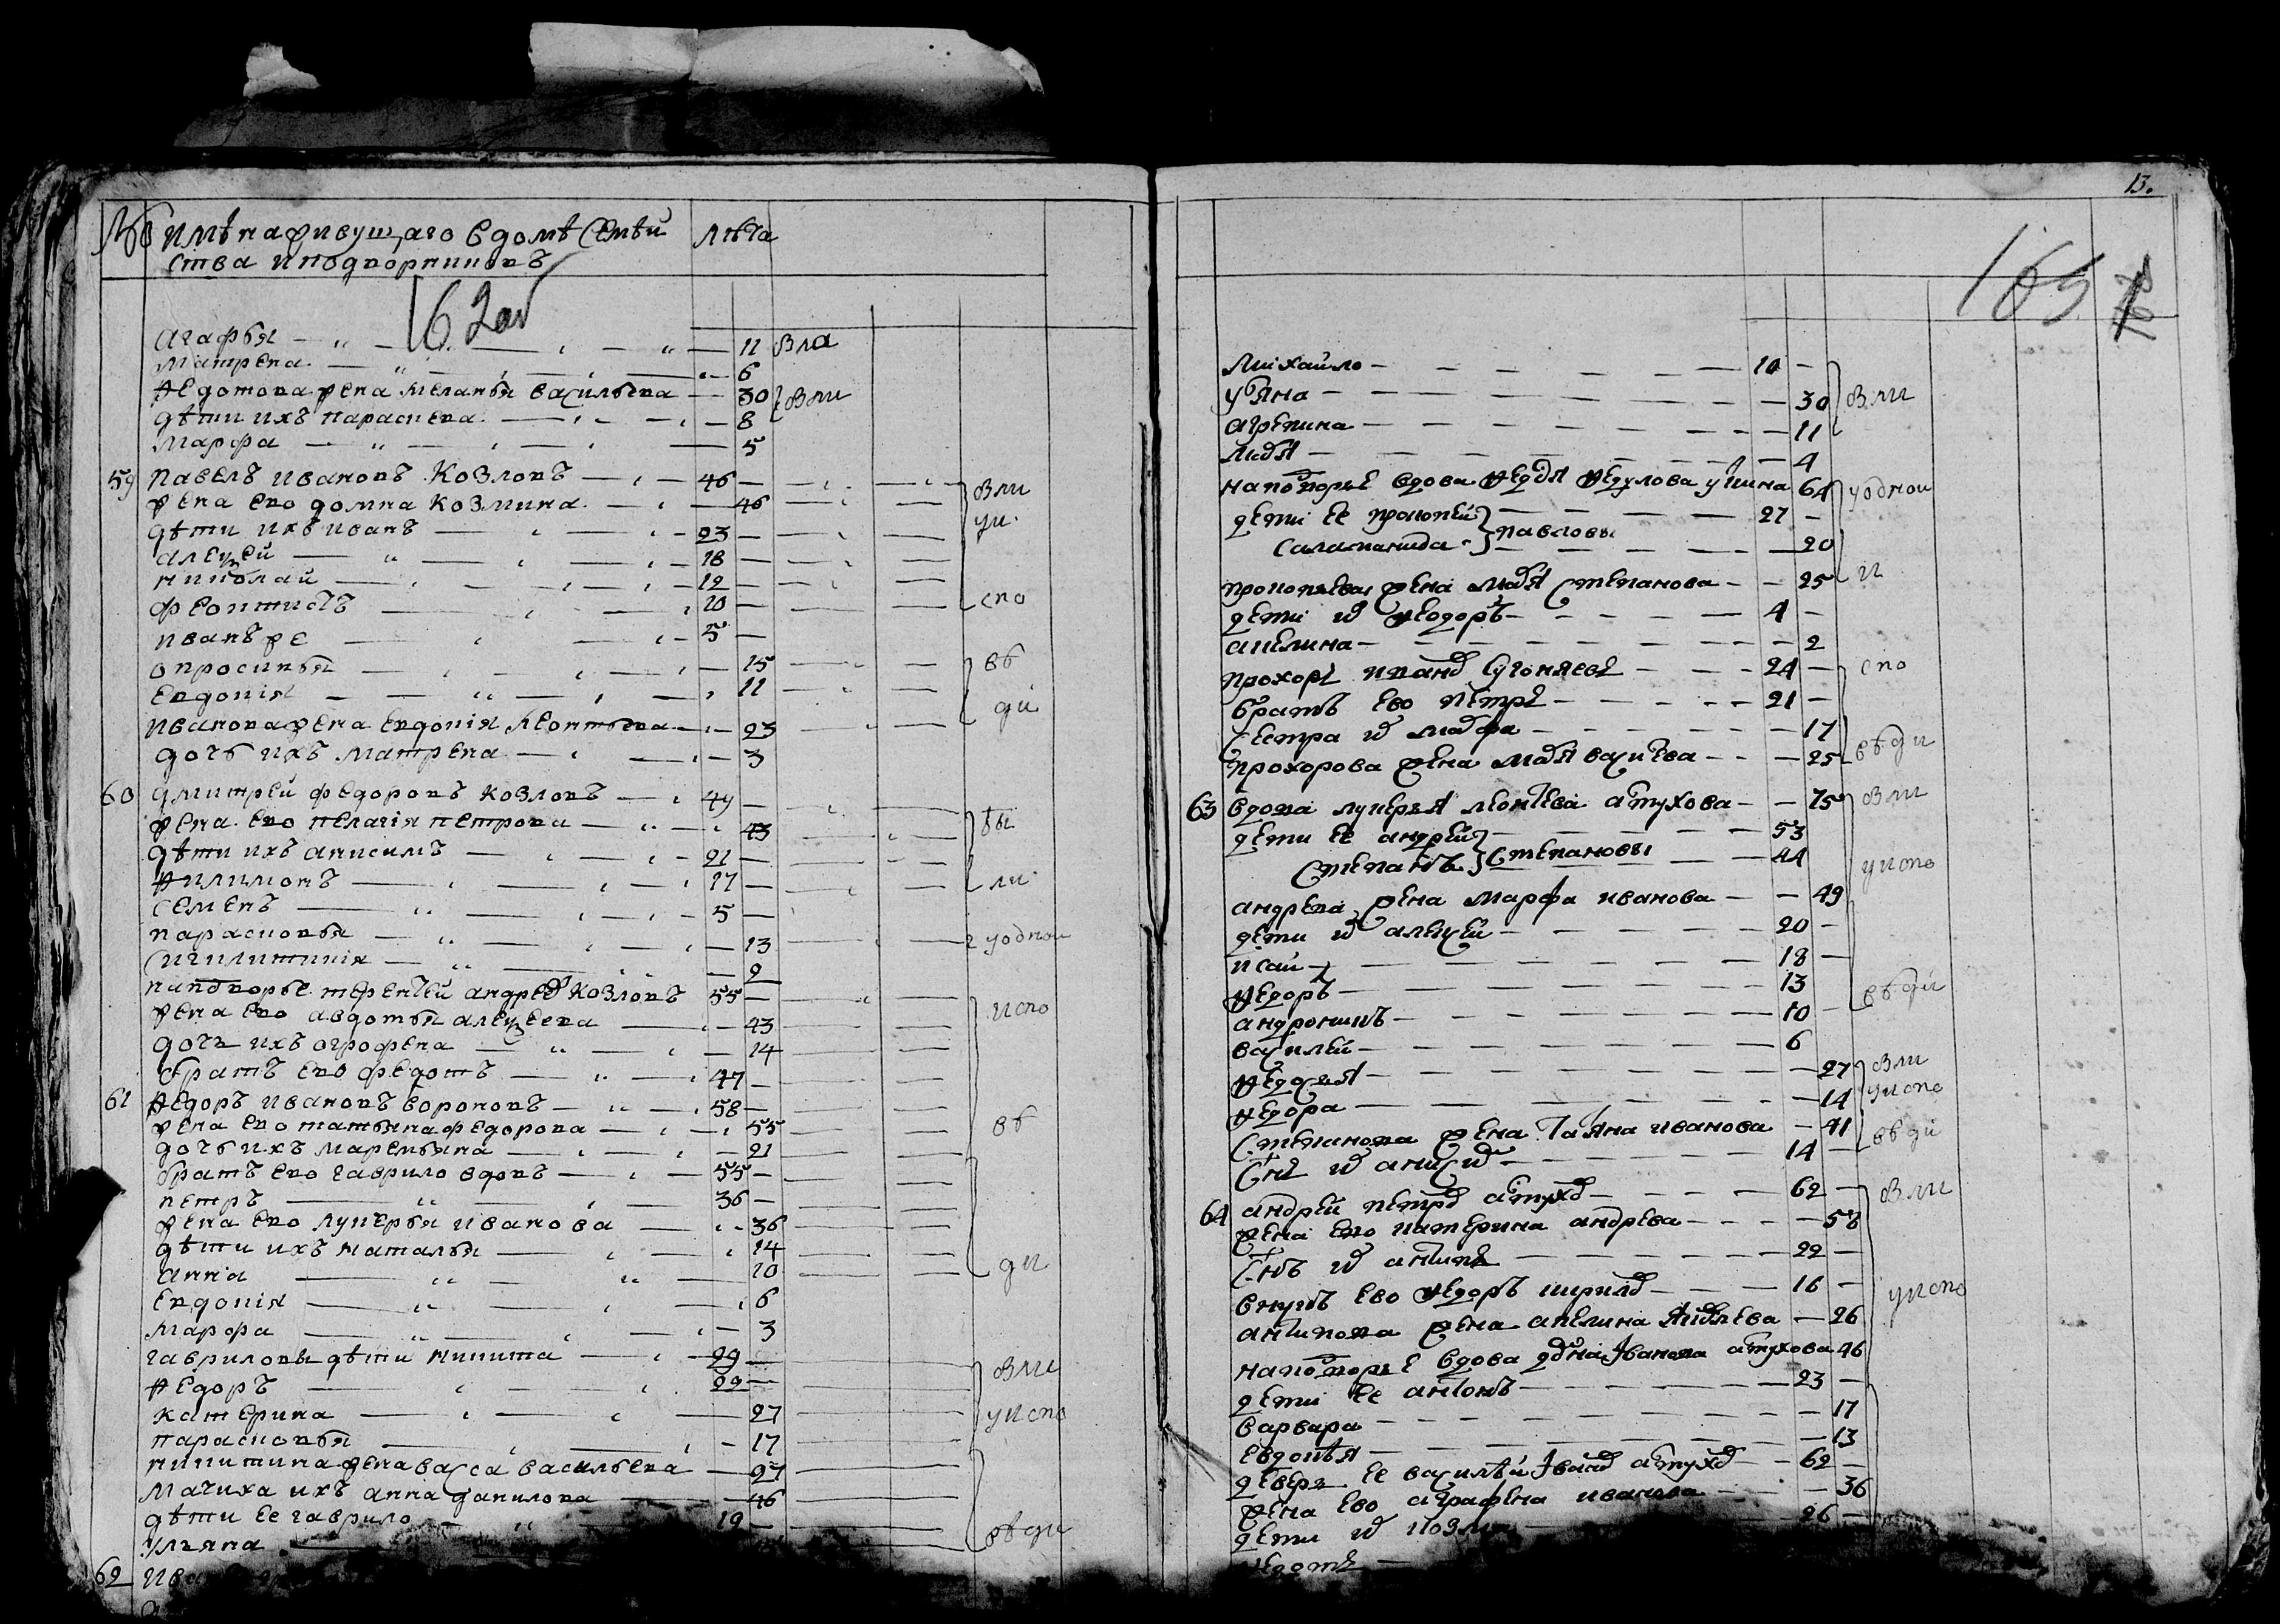 № имѣна живущаго в домѣ семѣй
ства и подворниковъ
лѣта
162 об
агафья 11 вла
матрена 6
ѳедотова жена меланья васильева 30 вли
дѣти ихъ параскева 8
марфа 5
59 павелъ ивановъ козловъ 46 вли
жена ево домна козмина 46
дѣти ихъ иванъ 23 ули
алеѯей 18
николай 12
феоктистъ 10 спо
иванъ же 5
опросинья 15 вѣ
евдокія 11
иванова жена евдокія леонтьева 23 ди
дочь ихъ матрена 3
60 дмитрей федоровъ козловъ 49
жена ево пелагія петрова 43 бы
дѣти ихъ анисимъ 21
ѳилимонъ 17 ли
семенъ 5
парасковья 13 уодной
сигклитикія 2
на подворье терентей андреевъ козловъ 55
жена ево авдотья алеѯеева 43 испо
дочь ихъ огрофена 14
братъ ево федотъ 47
61 ѳедоръ ивановъ вороновъ 58
жена ево татьяна федорова 55 вѣ
дочь ихъ маремьяна 21
братъ ево гаврило вдовъ 55
петръ 36
жена ево лукерья иванова 36
дѣти ихъ наталья 14
анна 10 ди
евдокія 6
марфа 3
гавриловы дѣти никита 29 вли
ѳедоръ 22
катерина 27 успо
парасковья 17
никитина жена васса васильева 27
мачиха ихъ анна данилова 46
дѣти ее гаврило 19
ульяна вѣди
62 Ива
13.
163
михайло 10
ульяна 30 вли
агрепина 11
марья 4
на подворье вдова ѳедосья ѳедулова 64 уодной
дети ее прокопей } павловы 27
саламанида 20
прокопьева жена марья степанова 25 и
дети их ѳеодоръ 4
акелина 2
прохоръ ивановъ сугоняевъ 24 спо
братъ ево петръ 21
сестра их марфа 17
прохорова жена марья васильева 25 вѣди
63 вдова лукерья леонтева атухова 75 вли
дети ее андрей } степановы 53
степанъ 44 успо
андреева жена марфа иванова 49
дети их алеѯей 20
исай 18
ѳедоръ 13 вѣди
андроникъ 10
василей 6
ѳедосья 27 вли
ѳедора 14 успо
степанова жена татьяна иванова 41 вѣди
сынъ их анисим 14
64 андрей петровъ атуховъ 62 вли
жена ево катерина андреева 58
сынъ их антипъ 22
внукъ ево ѳедоръ кириловъ 16 успо
антипова жена акелина яковлева 26
на подворье вдова дарья иванова атухова 46
дети ее антонъ 23
варвара 17
евдокѣя 13
деверь ее василѣй ивановъ атуховъ 62
жена ево аграфена иванова 36
дети их козма 26
ѳедотъ